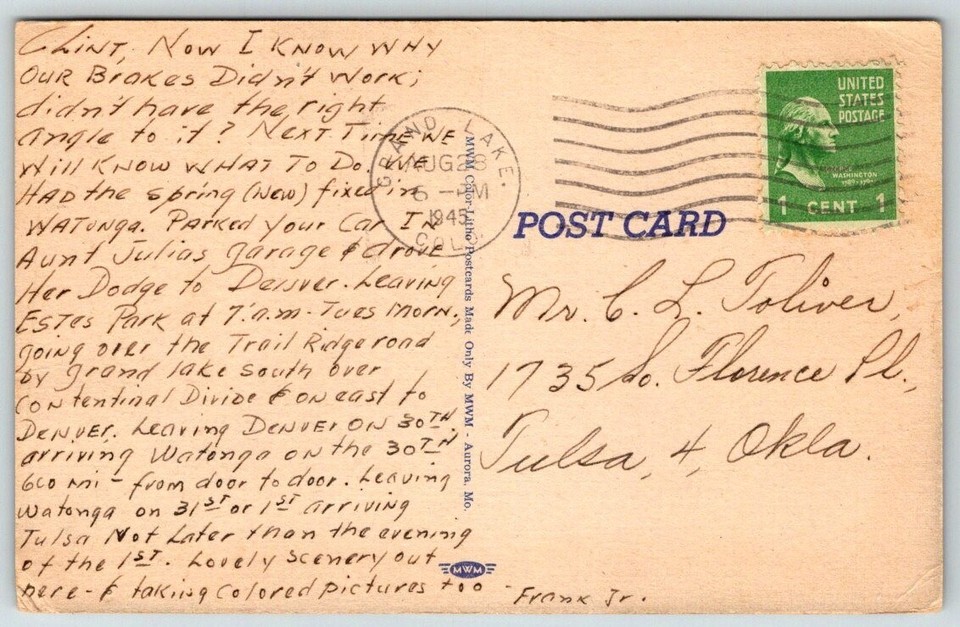 Clint, Now I Know WHY
Our Brakes Didn't Work;
didn't have the right
angle to it? Next Time WE
Will Know WHAT To Do. I've
HAD the spring (New) fixed in
WATONGA. Parked your Car IN
Aunt Julias garage & drove
Her Dodge to Denver. Leaving
ESTES PARK at 7:a.m. Tues Morn.,
going over the Trail Ridge road
by grand lake south over
Contentinal Divide & on east to
DENVER. Leaving DENVER ON 30TH
arriving Watonga on the 30TH
600 mi - from door to door. Leaving
Watonga on 31ST or 1ST arriving
Tulsa Not Later than the evening
of the 1ST. Lovely Scenery out
here - & taking colored pictures too - Frank Jr.
GRAND LAKE.
AUG 28
6 - PM
1945
COLO.
MWM Color-Litho Postcards Made Only By MWM - Aurora, Mo.
MWM
POST CARD
UNITED
STATES
POSTAGE
WASHINGTON
1 CENT 1
Mr. C. L. Toliver,
1735 So. Florence Pl.,
Tulsa, 4, Okla.